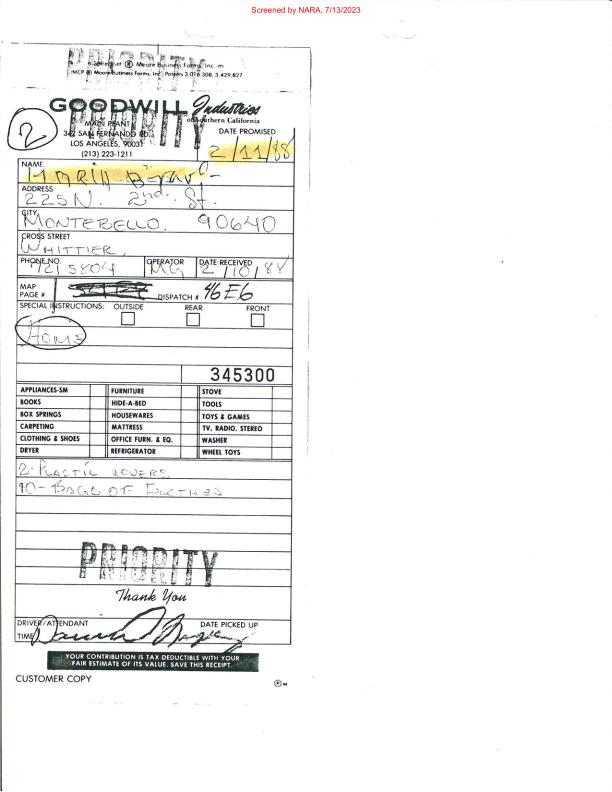 Screened by NARA, 7/13/2023
PRIORITY
Moore Business Forms, Inc.-m
IMCP ® Moore Business Forms, Inc. Patents 3,016,308, 3,429,827
GOODWILL Industries
of Southern California
PRIORITY
2
MAIN PLANT
342 SAN FERNANDO RD.
LOS ANGELES, 90031
(213) 223-1211
DATE PROMISED
2/11/88
NAME
MARIA Bravo
ADDRESS
225 N. 2nd St.
CITY
MONTEBELLO. 90640
CROSS STREET
WHITTIER
PHONE NO. OPERATOR DATE RECEIVED
7215804 MG 2/10/88
MAP PAGE # DISPATCH # 46E6
SPECIAL INSTRUCTIONS: OUTSIDE REAR FRONT
HOME
345300
APPLIANCES-SM FURNITURE STOVE
BOOKS HIDE-A-BED TOOLS
BOX SPRINGS HOUSEWARES TOYS & GAMES
CARPETING MATTRESS TV, RADIO, STEREO
CLOTHING & SHOES OFFICE FURN. & EQ. WASHER
DRYER REFRIGERATOR WHEEL TOYS
2-PLASTIC COVERS
10-BAGS OF
PRIORITY
Thank You
DRIVER/ATTENDANT DATE PICKED UP
TIME
YOUR CONTRIBUTION IS TAX DEDUCTIBLE WITH YOUR
FAIR ESTIMATE OF ITS VALUE. SAVE THIS RECEIPT.
CUSTOMER COPY